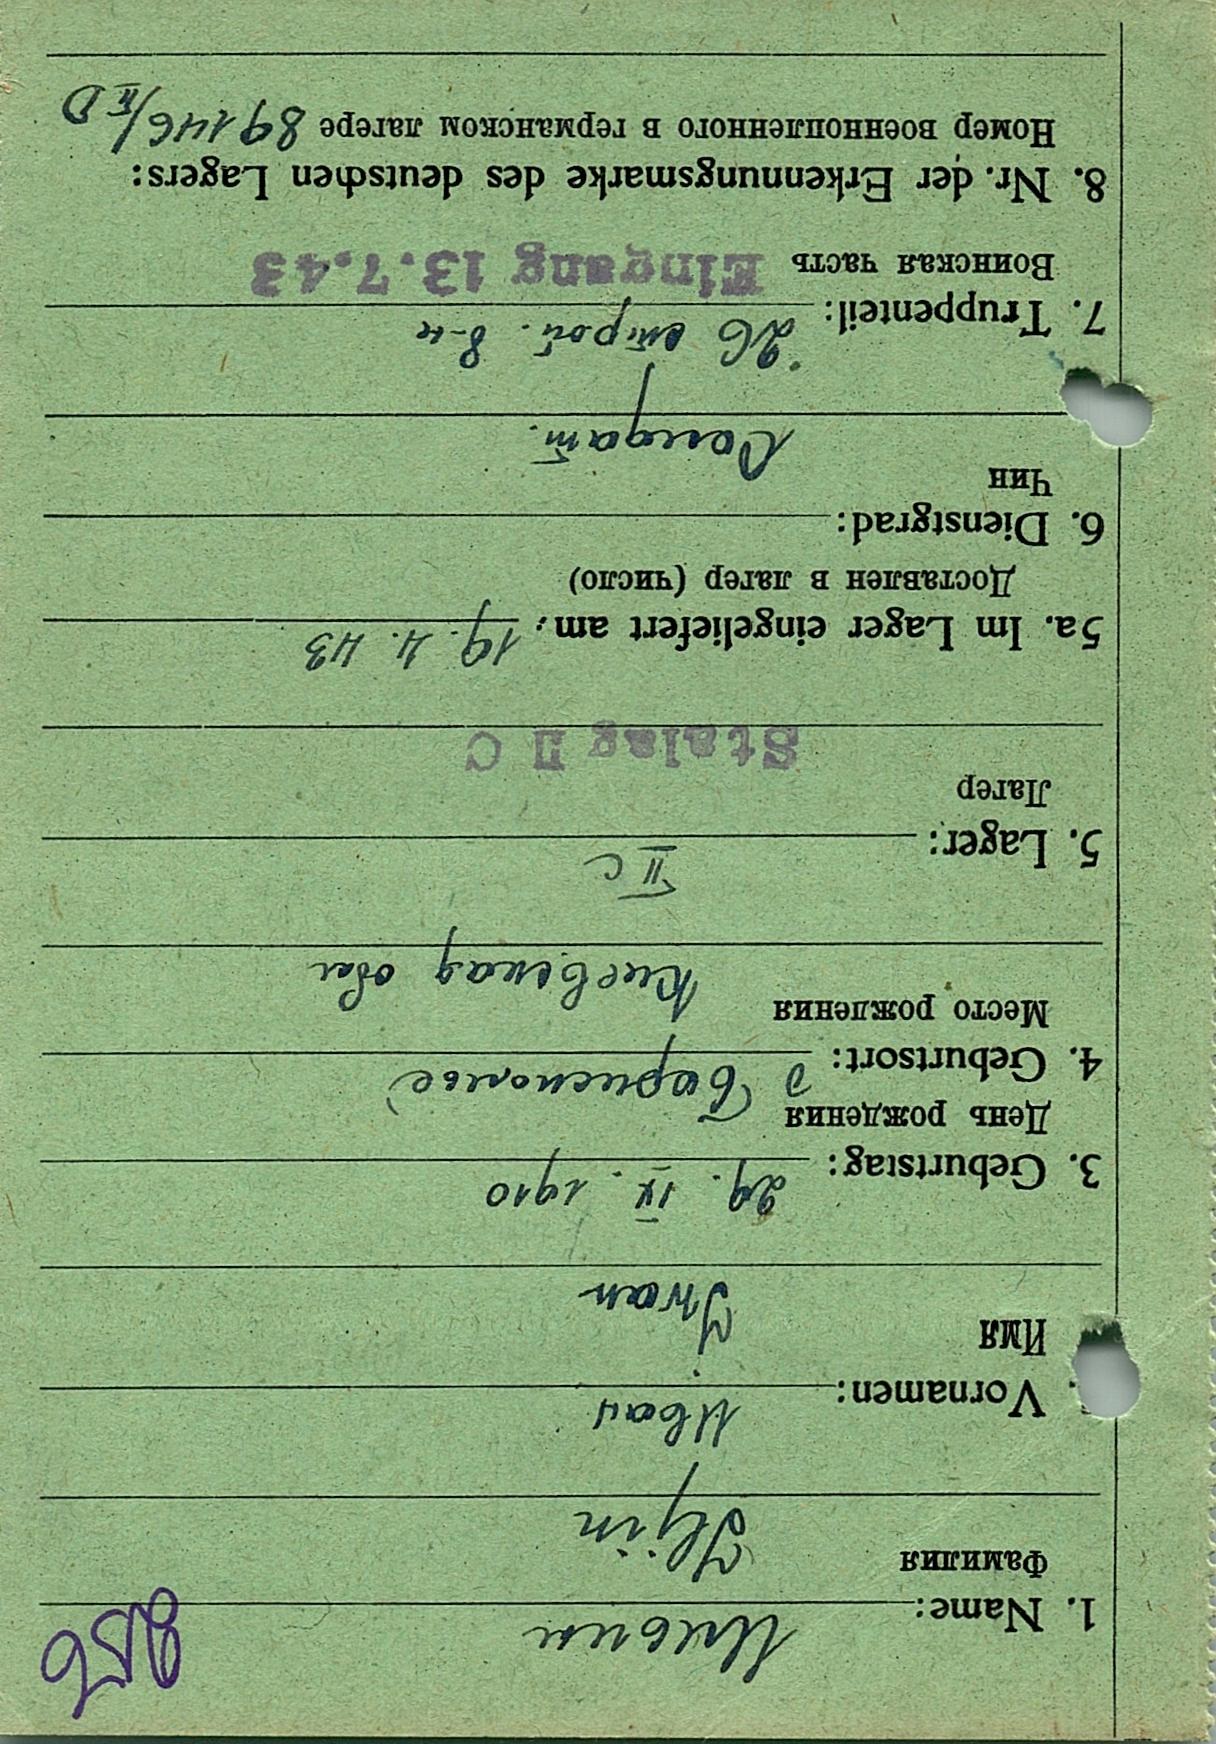 856
1. Name: Ильин
Фамилия
Iljin
Vornamen: Иван
Имя
Iwan
3. Geburtstag: 29. IX. 1910
День рождения
4. Geburtsort: д Борисполье
Место рождения
Киевская обл
5. Lager: II C
Лагер
Stalag II C
5a. Im Lager eingeliefert am: 19. 4. 43
Доставлен в лагер (число)
6. Dienstgrad:
Чин
Солдат.
7. Truppenteil: 26 строй. б-н
Воинская часть
Eingang 13.7.43
8. Nr. der Erkennungsmarke des deutschen Lagers:
Номер военнопленного в германском лагере 89146/II D